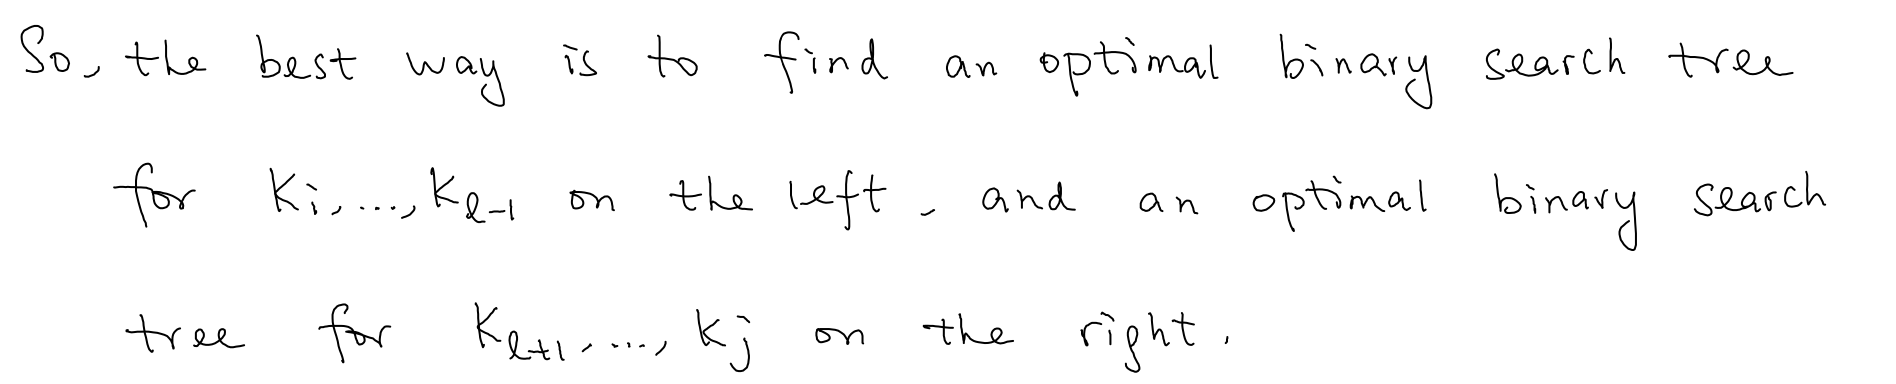 So, the best way is to find an optimal binary search tree
for Ki, ..., Kℓ-1 on the left, and an optimal binary search
tree for Kℓ+1, ..., Kj on the right.